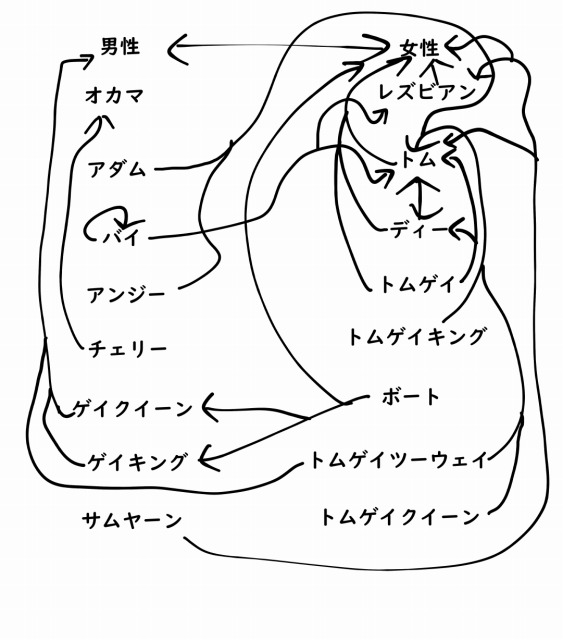 男性
女性
オカマ
レズビアン
アダム
トム
バイ
ディー
アンジー
トムゲイ
チェリー
トムゲイキング
ゲイクイーン
ボート
ゲイキング
トムゲイツーウェイ
サムヤーン
トムゲイクイーン